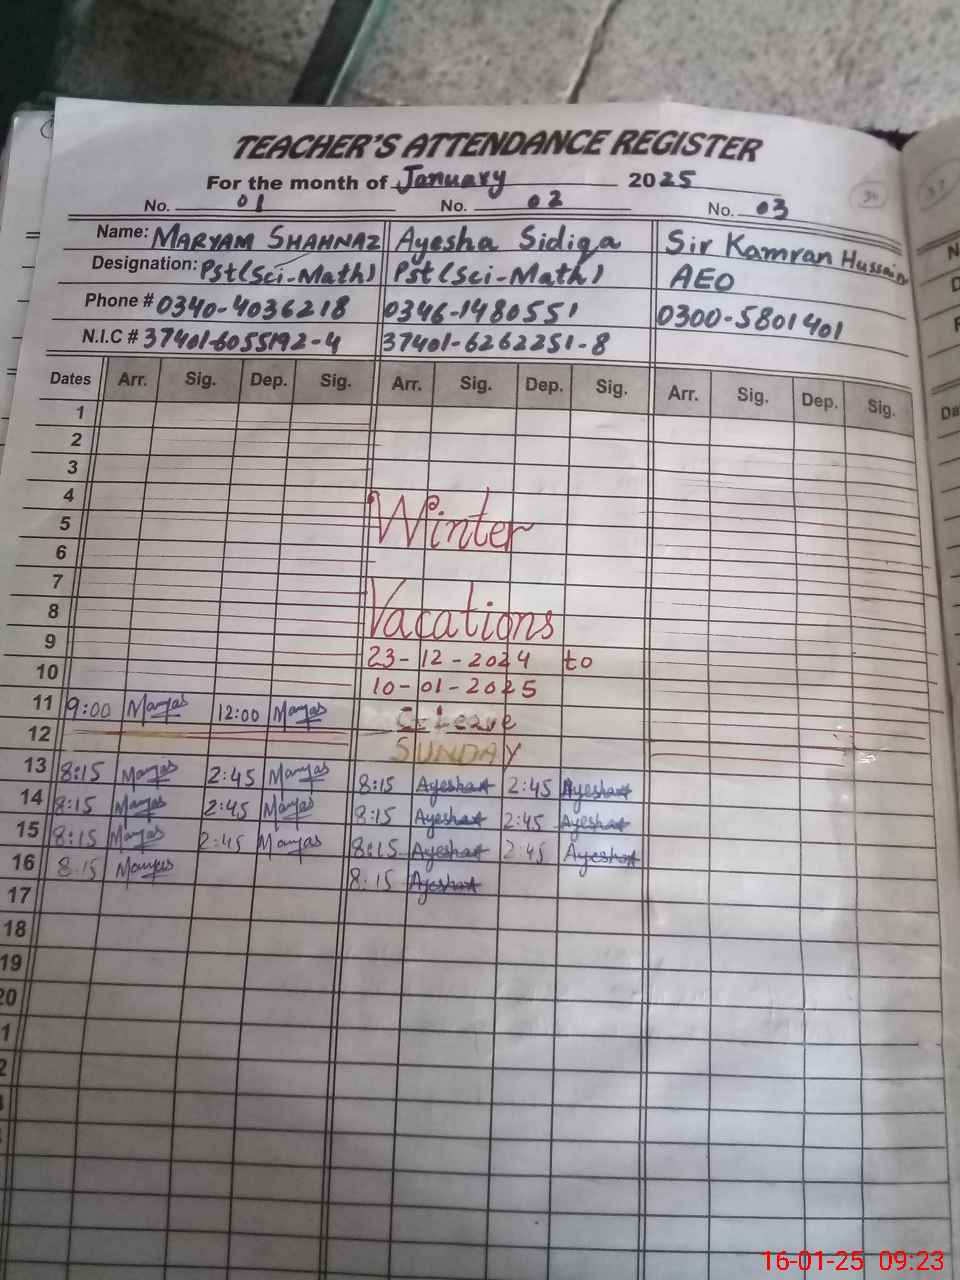 TEACHER'S ATTENDANCE REGISTER
For the month of January 2025
No. 01 No. 02 No. 03
Name: MARYAM SHAHNAZ Ayesha Sidiqa Sir Kamran Hussain
Designation: Pst(Sci-Math) Pst(Sci-Math) AEO
Phone # 0340-4036218 0346-1480551 0300-5801401
N.I.C # 37401-6055192-4 37401-6262251-8
Dates Arr. Sig. Dep. Sig. Arr. Sig. Dep. Sig. Arr. Sig. Dep. Sig.
1
2
3
4
5 Winter
6
7
8 Vacations
9 23-12-2024 to
10 10-01-2025
11 9:00 Maryas 12:00 Maryas Leave
12 SUNDAY
13 8:15 Maryas 2:45 Maryas 8:15 Ayesha 2:45 Ayesha
14 8:15 Maryas 2:45 Maryas 8:15 Ayesha 2:45 Ayesha
15 8:15 Maryas 2:45 Maryas 8:15 Ayesha 2:45 Ayesha
16 8:15 Maryas 8:15 Ayesha
17
18
19
20
1
2
16-01-25 09:23